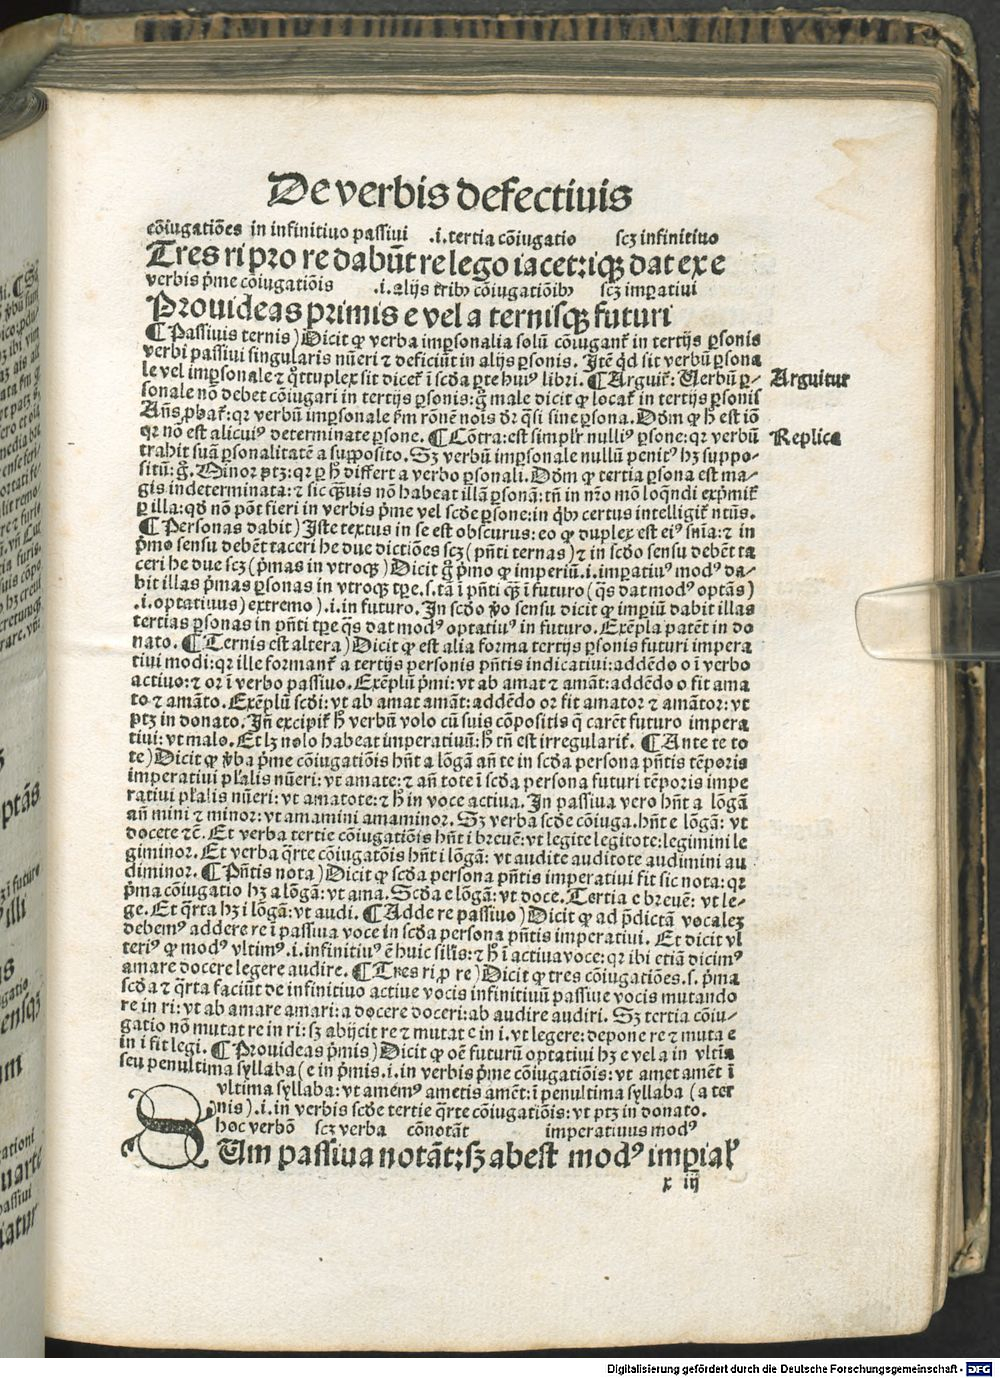 De verbis defectiuis
cõiugatiões in infinitiuo passiui .i. tertia cõiugatio scȝ infinitiuo
Tres ri pro re dabũt re lego iacet:iqꝫ dat ex e
verbis p̄me cõiugatiõis .i. alijs tribꝰ cõiugatiõibꝰ scȝ imꝑatiui
Prouideas primis e vel a ternisqꝫ futuri
¶ Passiuis ternis) Dicit ꝙ verba imꝑsonalia solũ cõiugant᷑ in tertijs ꝑsonis
verbi passiui singularis nũeri ⁊ deficiũt in alijs ꝑsonis. Itẽ qd̓ sit verbũ ꝑsona
le vel imꝑsonale ⁊ q̊ttuplex sit dicet᷑ ĩ scd̓a ꝑte huiꝰ libri. ¶ Arguit᷑: Uerbũ ꝑ-
Arguitur
sonale nõ debet cõiugari in tertijs ꝑsonis: g̊ male dicit ꝙ locat᷑ in tertijs ꝑsonis
Añs ꝓbat᷑: qꝛ verbũ imꝑsonale ẜm rõnẽ noĩs dr̃ q̃si sine ꝑsona. Dd̓m ꝙ h̃ est iõ
qꝛ nõ est alicuiꝰ determinate ꝑsone. ¶ Cõtra: est simpl'r nulliꝰ ꝑsone: qꝛ verbũ
Replica
trahit suã ꝑsonalitatẽ a supposito. Sȝ verbũ imꝑsonale nullũ penitꝰ hȝ suppo-
sitũ: g̊. Minor ptȝ: qꝛ ꝑ h̃ differt a verbo ꝑsonali. Dd̓m ꝙ tertia ꝑsona est ma-
gis indeterminata: ⁊ sic q̃uis nõ habeat illã ꝑsonã: tñ in nr̃o mõ loq̃ndi exp̃mit᷑
ꝑ illa: qd̓ nõ põt fieri in verbis p̄me vel scd̓e ꝑsone: in qͥbꝰ certus intelligit᷑ ntũs.
¶ Personas dabit) Iste textus in se est obscurus: eo ꝙ duplex est eiꝰ snĩa: ⁊ in
p̄mo sensu debẽt taceri he due dictiões scȝ (pñti ternas) ⁊ in scd̓o sensu debẽt ta
ceri he due scȝ (p̄mas in vtroqꝫ) Dicit g̊ p̄mo ꝙ imperiũ .i. imꝑatiuꝰ modꝰ da-
bit illas p̄mas ꝑsonas in vtroqꝫ tꝑe .s. tã ĩ pñti qꝫ̃ ĩ futuro (q̃s dat modꝰ optãs)
.i. optatiuus) extremo) .i. in futuro. In scd̓o v̊o sensu dicit ꝙ imꝑiũ dabit illas
tertias ꝑsonas in pñti tꝑe q̃s dat modꝰ optatiuꝰ in futuro. Exẽpla patẽt in do
nato. ¶ Ternis est altera) Dicit ꝙ est alia forma tertijs ꝑsonis futuri impera
tiui modi: qꝛ ille formant᷑ a tertijs personis pñtis indicatiui: addẽdo o ĩ verbo
actiuo: ⁊ or ĩ verbo passiuo. Exẽplũ p̄mi: vt ab amat ⁊ amãt: addẽdo o fit ama
to ⁊ amãto. Exẽplũ scd̓i: vt ab amat amãt: addẽdo or fit amator ⁊ amãtor: vt
ptȝ in donato. Iñ excipit᷑ h̃ verbũ volo cũ suis cõpositis q̃ carẽt futuro impera
tiui: vt malo. Et lȝ nolo habeat imperatiuũ: h̃ tñ est irregularit᷑. ¶ Ante te to
te) Dicit ꝙ v̊ba p̄me cõiugatiõis hñt a lõgã añ te in scd̓a persona pñtis tẽporis
imperatiui pl'alis nũeri: vt amate: ⁊ añ tote ĩ scd̓a persona futuri tẽporis impe
ratiui pl'alis nũeri: vt amatote: ⁊ h̃ in voce actiua. In passiua vero hñt a lõgã
añ mini ⁊ minor: vt amamini amaminor. Sȝ verba scd̓e cõiuga. hñt e lõgã: vt
docete ⁊c̃. Et verba tertie cõiugatiõis hñt i breuẽ: vt legite legitote: legimini le
giminor. Et verba q̃rte cõiugatõis hñt i lõgã: vt audite auditote audimini au
diminor. ¶ Pñtis nota) Dicit ꝙ scd̓a persona pñtis imperatiui fit sic nota: qꝛ
p̄ma cõiugatio hȝ a lõgã: vt ama. Scd̓a e lõgã: vt doce. Tertia e breuẽ: vt le-
ge. Et q̃rta hȝ i lõgã: vt audi. ¶ Adde re passiuo) Dicit ꝙ ad p̄dictã vocaleȝ
debemꝰ addere re ĩ passiua voce in scd̓a persona pñtis imperatiui. Et dicit vl
teriꝰ ꝙ modꝰ vltimꝰ .i. infinitiuꝰ ẽ huic sil'is: ⁊ h̃ ĩ actiua voce: qꝛ ibi etiã dicimꝰ
amare docere legere audire. ¶ Tres ri ꝓ re) Dicit ꝙ tres cõiugatiões .s. p̄ma
scd̓a ⁊ q̃rta faciũt de infinitiuo actiue vocis infinitiuũ passiue vocis mutando
re in ri: vt ab amare amari: a docere doceri: ab audire audiri. Sȝ tertia cõiu-
gatio nõ mutat re in ri: sȝ abijcit re ⁊ mutat e in i. vt legere: depone re ⁊ muta e
in i fit legi. ¶ Prouideas p̄mis) Dicit ꝙ oẽ futurũ optatiui hȝ e vel a in vltĩa
seu penultima syllaba (e in p̄mis .i. in verbis p̄me cõiugatiõis: vt amet amẽt ĩ
vltima syllaba: vt amemꝰ ametis amẽt: ĩ penultima syllaba (a ter
nis) .i. in verbis scd̓e tertie q̃rte cõiugatiõis: vt ptȝ in donato.
hoc verbõ scȝ verba cõnotãt imperatiuus modꝰ
SUm passiua notãt: sȝ abest modꝰ imꝑial'
x iij
Digitalisierung gefördert durch die Deutsche Forschungsgemeinschaft - DFG